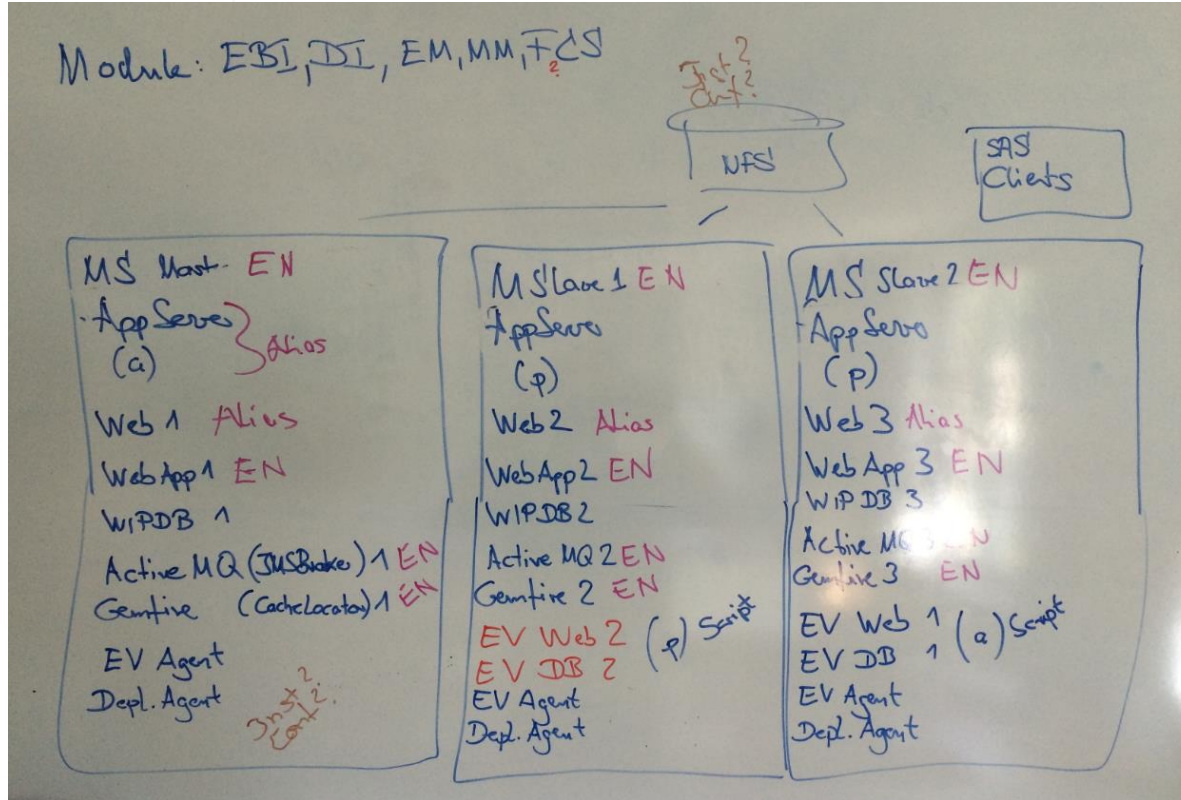 Module: EBI, DI, EM, MM, FCS
?
Inst?
Cont?
NFS
SAS
Clients
MS Mast. EN
AppServer
(a)
Alias
Web 1 Alias
WebApp1 EN
WIPDB 1
Active MQ (JMSBroker) 1 EN
Gemfire (CacheLocator) 1 EN
EV Agent
Depl. Agent
Inst?
Cont?
MSlave 1 EN
AppServer
(p)
Web 2 Alias
WebApp2 EN
WIPDB2
Active MQ 2 EN
Gemfire 2 EN
EV Web 2
EV DB 2
(p) Script
EV Agent
Depl. Agent
MS Slave 2 EN
AppServer
(p)
Web 3 Alias
Web App 3 EN
WIPDB 3
Active MQ 3 EN
Gemfire 3 EN
EV Web 1
EV DB 1
(a) Script
EV Agent
Depl. Agent